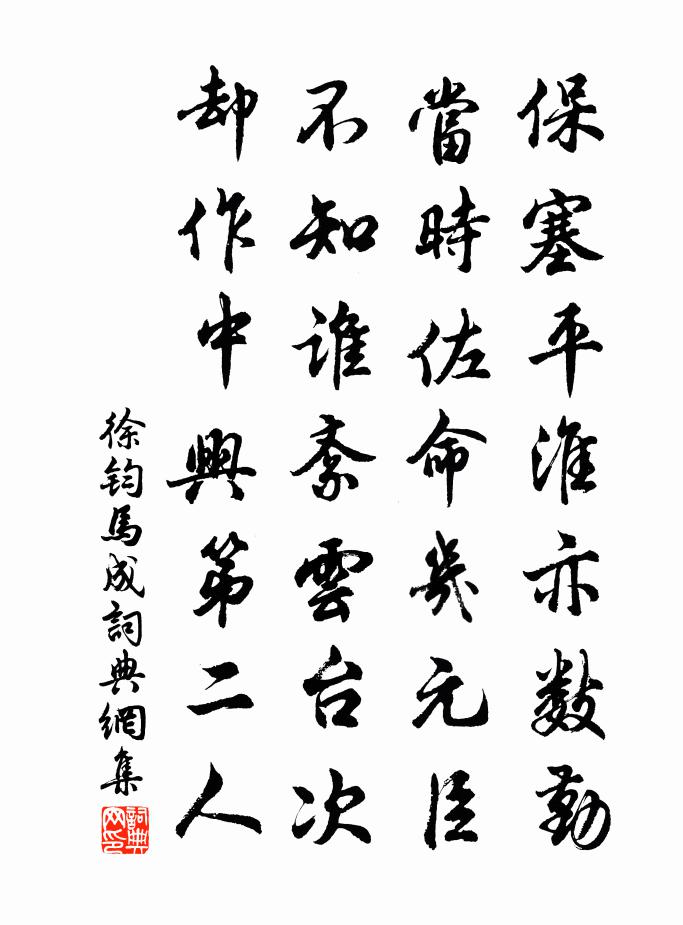 保塞平淮亦數勤
當時佐命幾元臣
不知誰紊雲台次
却作中興第二人
徐鈞馬成詞典網集
詞典網印